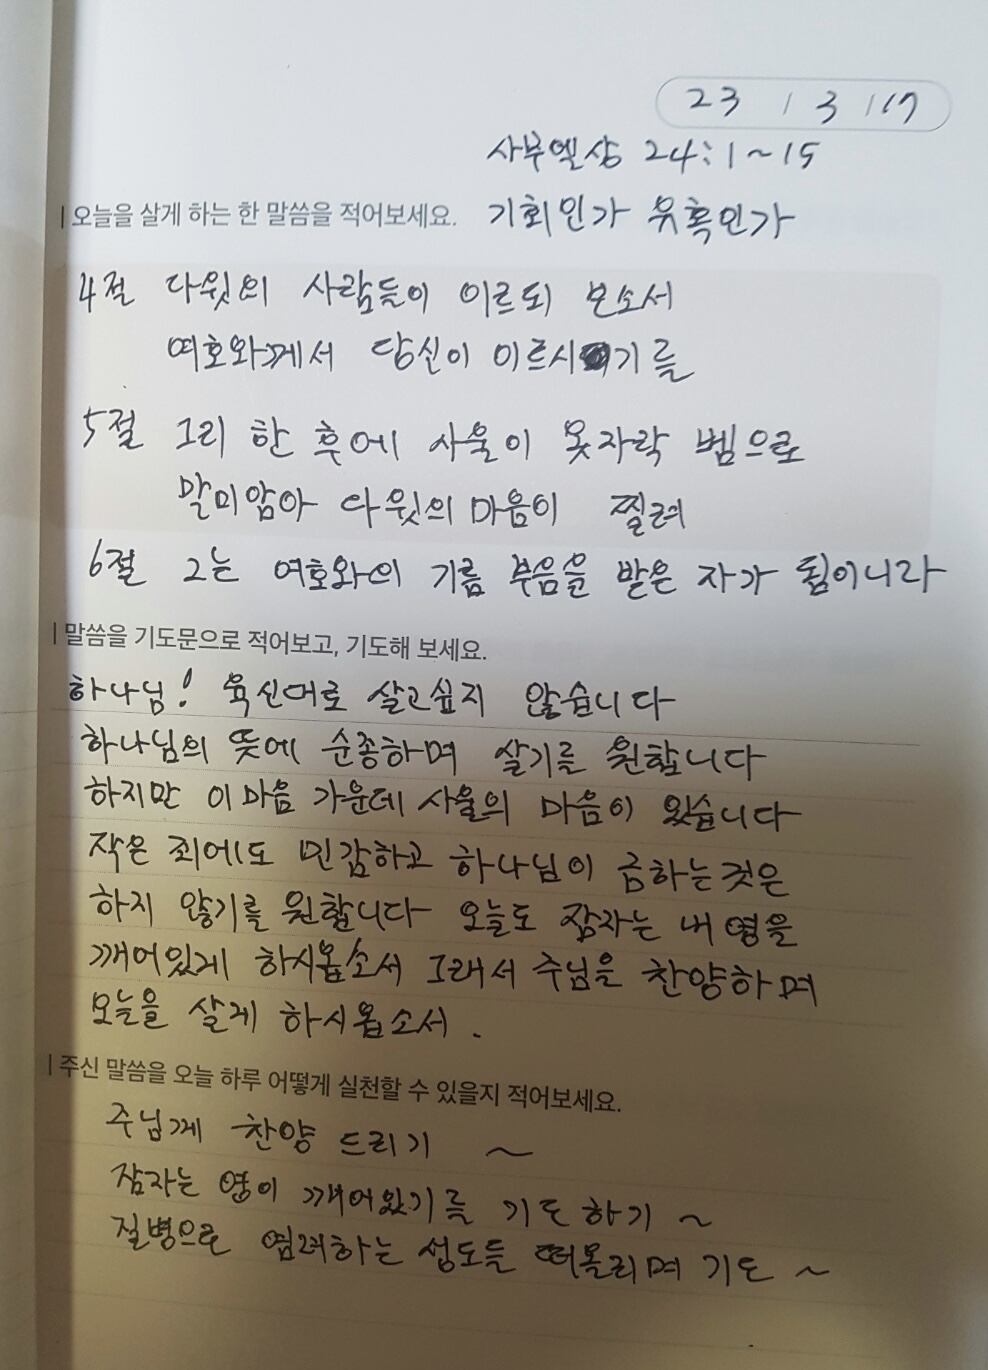 23 / 3 / 17
사무엘상 24:1~15
| 오늘을 살게 하는 한 말씀을 적어보세요. 기회인가 유혹인가
4절 다윗의 사람들이 이르되 보소서
여호와께서 당신이 이르시기를
5절 그리 한 후에 사울이 옷자락 벰으로
말미암아 다윗의 마음이 찔려
6절 그는 여호와의 기름 부음을 받은 자가 됨이니라
| 말씀을 기도문으로 적어보고, 기도해 보세요.
하나님! 육신대로 살고싶지 않습니다
하나님의 뜻에 순종하며 살기를 원합니다
하지만 이 마음 가운데 사울의 마음이 있습니다
작은 죄에도 민감하고 하나님이 금하는것은
하지 않기를 원합니다 오늘도 잠자는 내 영을
깨어있게 하시옵소서 그래서 주님을 찬양하며
오늘을 살게 하시옵소서.
| 주신 말씀을 오늘 하루 어떻게 실천할 수 있을지 적어보세요.
주님께 찬양 드리기 ~
잠자는 영이 깨어있기를 기도하기 ~
질병으로 염려하는 성도들 떠올리며 기도 ~